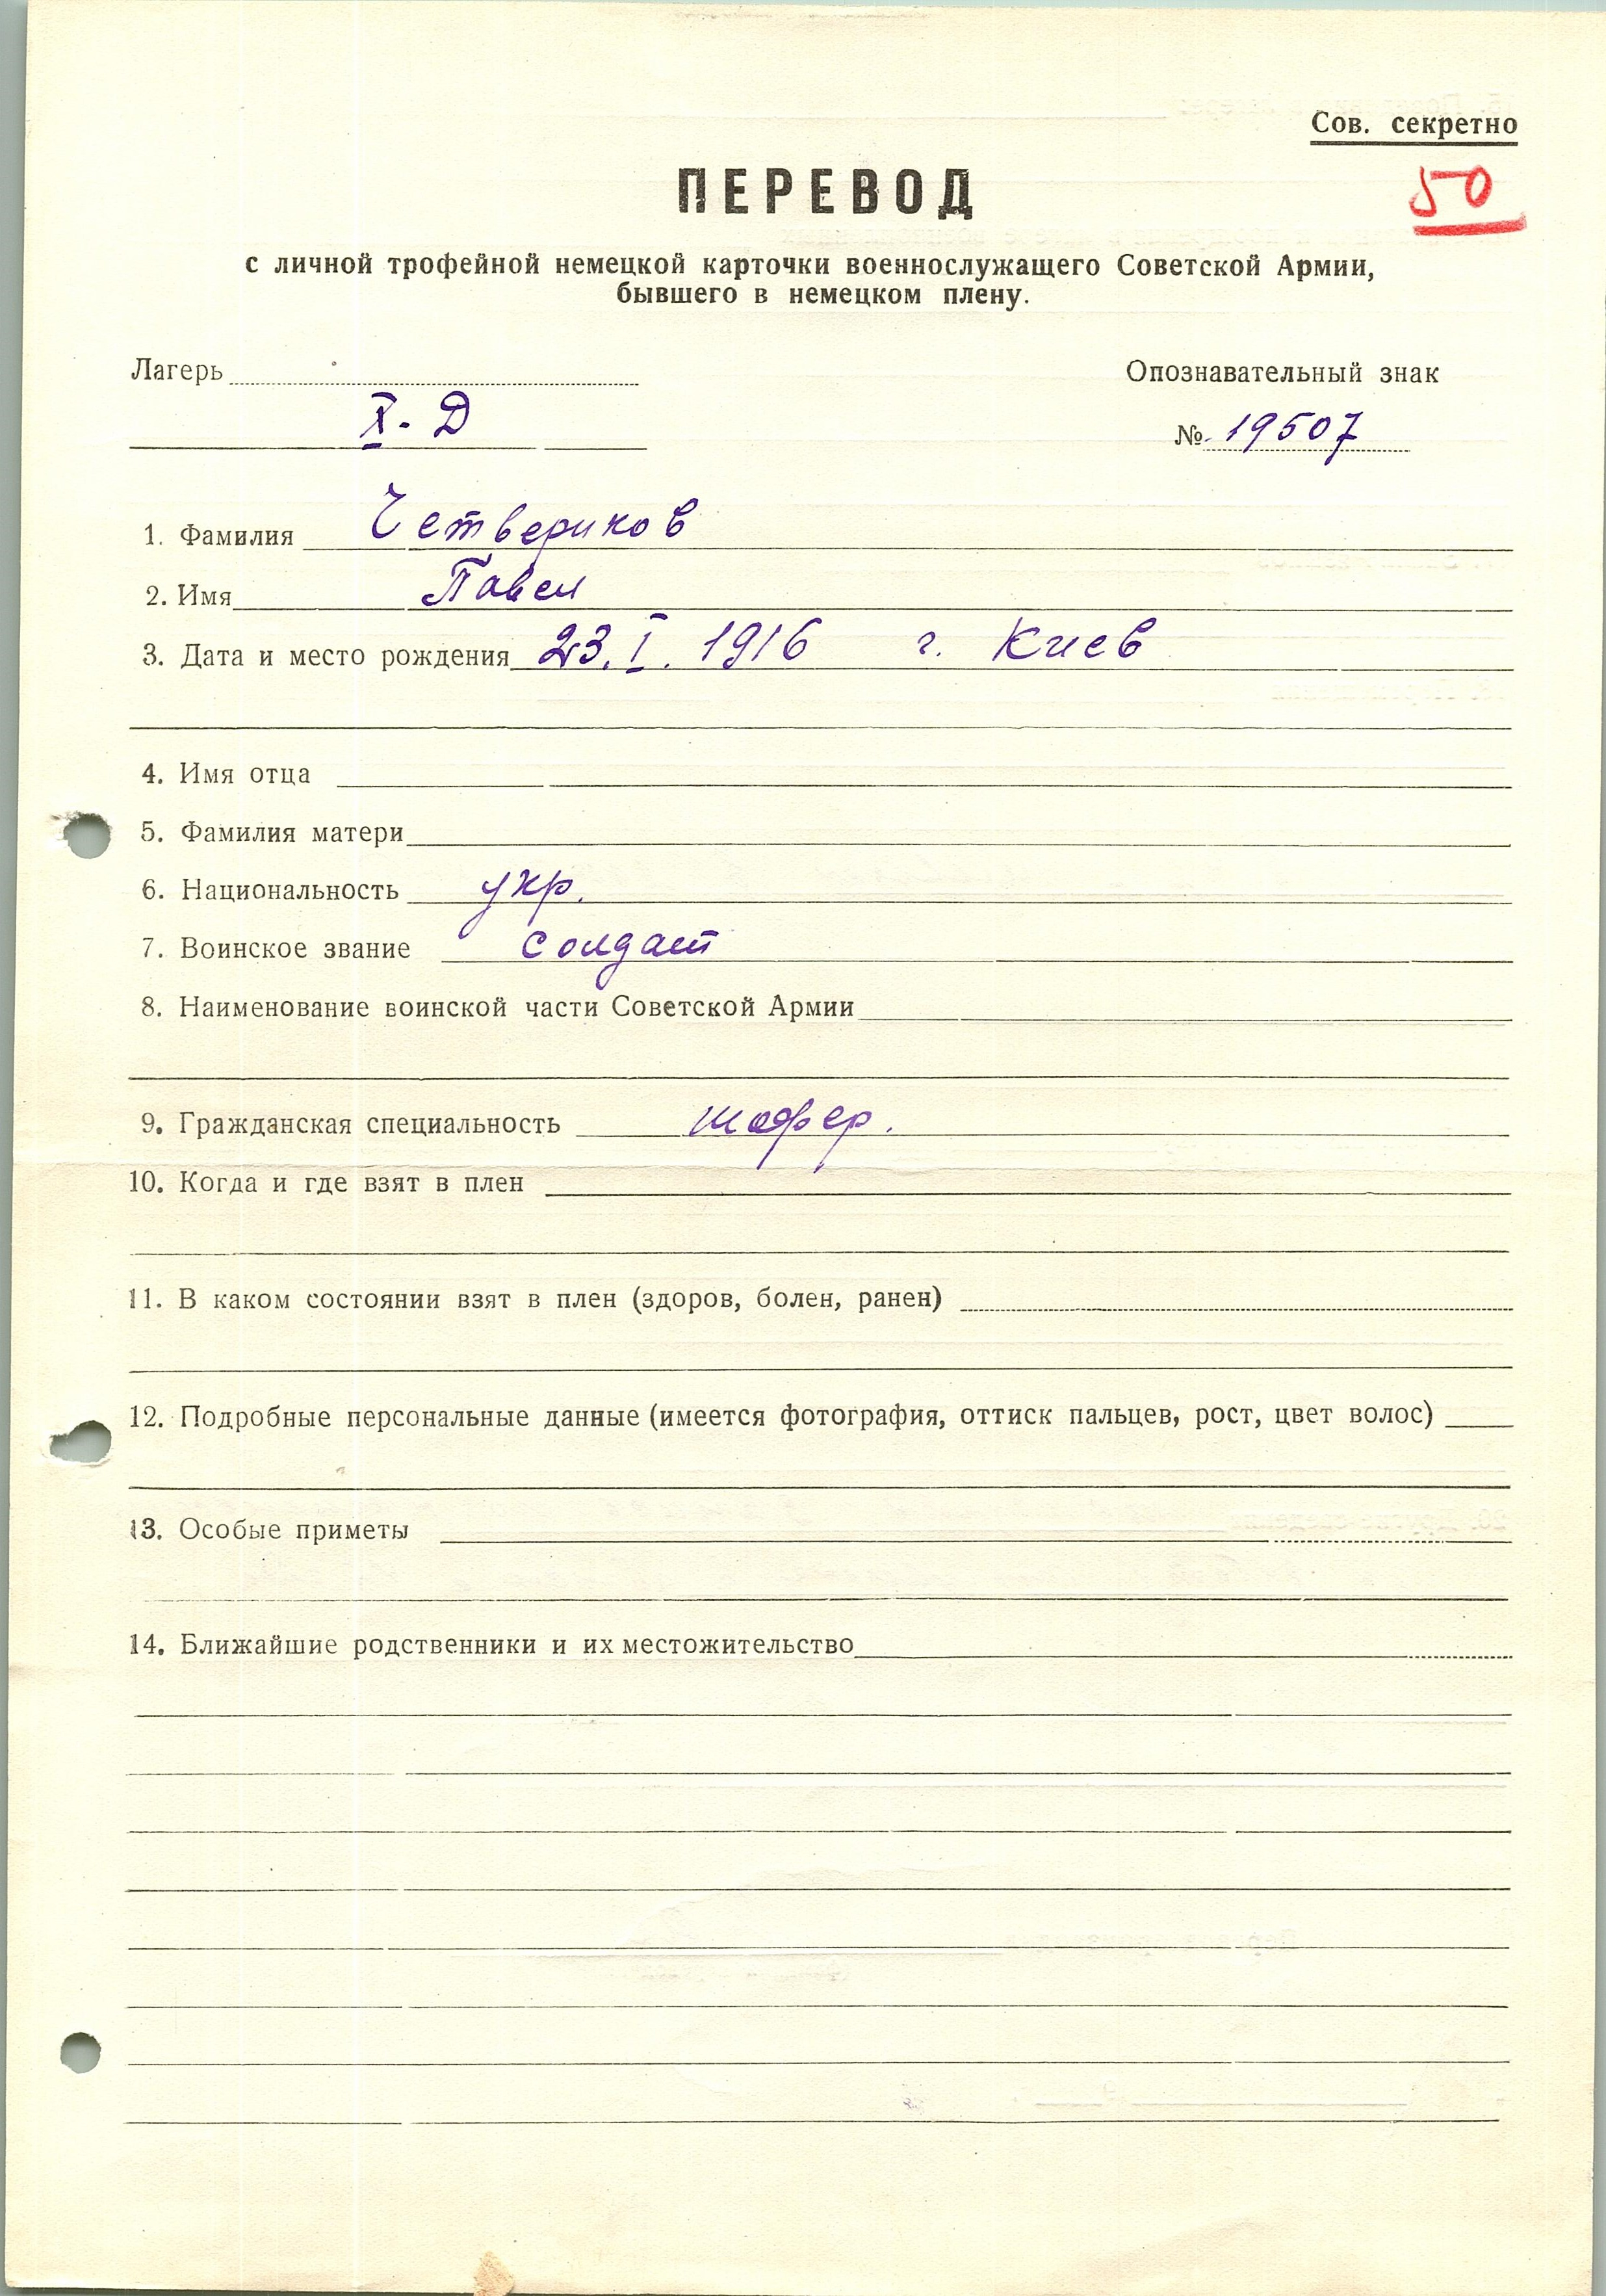 Сов. секретно
50
ПЕРЕВОД
с личной трофейной немецкой карточки военнослужащего Советской Армии,
бывшего в немецком плену.
Лагерь
Опознавательный знак
X-Д
№ 19507
1. Фамилия Четвериков
2. Имя Павел
3. Дата и место рождения 23.I.1916 г. Киев
4. Имя отца
5. Фамилия матери
6. Национальность укр.
7. Воинское звание солдат
8. Наименование воинской части Советской Армии
9. Гражданская специальность шофер.
10. Когда и где взят в плен
11. В каком состоянии взят в плен (здоров, болен, ранен)
12. Подробные персональные данные (имеется фотография, оттиск пальцев, рост, цвет волос)
13. Особые приметы
14. Ближайшие родственники и их местожительство